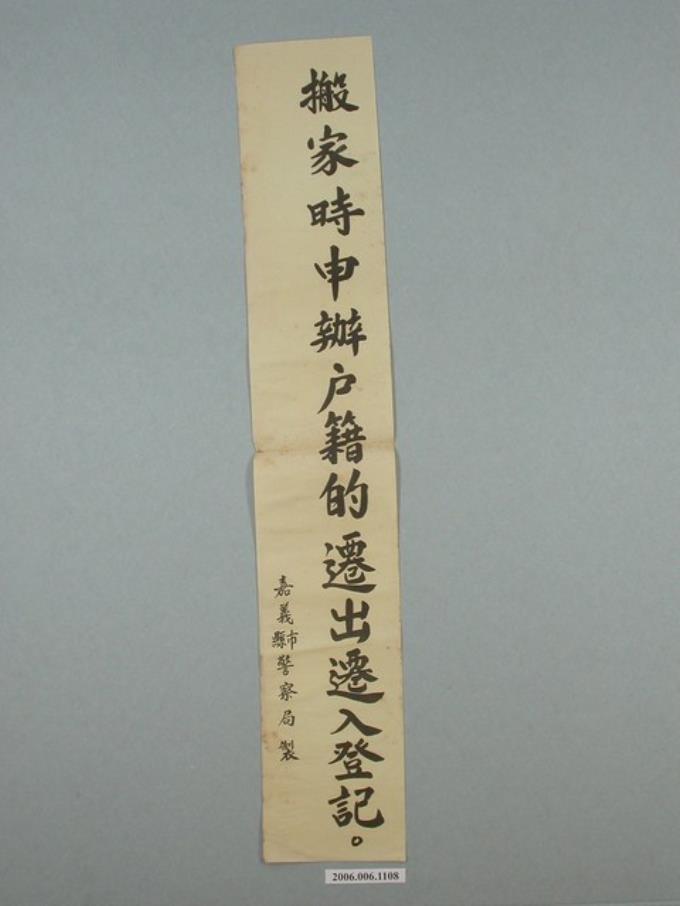 搬家時申辦户籍的遷出遷入登記。
嘉義縣市警察局製
2006.006.1108